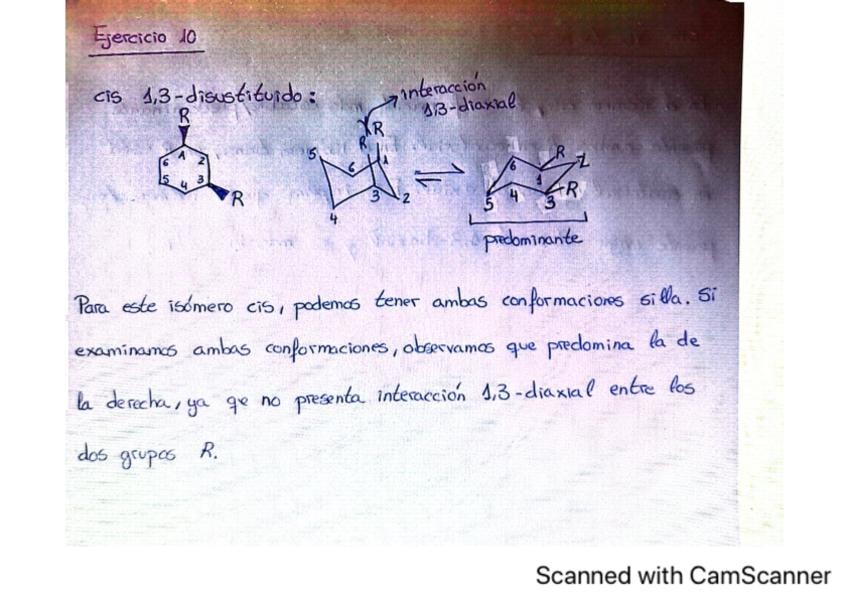 Ejercicio 10
cis 1,3-disustituido:
interacción
1,3-diaxial
R
6 1 2
5 4 3
R
R R
5 6 1
3 2
4
R
6 2
1 R
5 4 3
predominante
Para este isómero cis, podemos tener ambas conformaciones silla. Si
examinamos ambas conformaciones, observamos que predomina la de
la derecha, ya qe no presenta interacción 1,3-diaxial entre los
dos grupos R.
Scanned with CamScanner